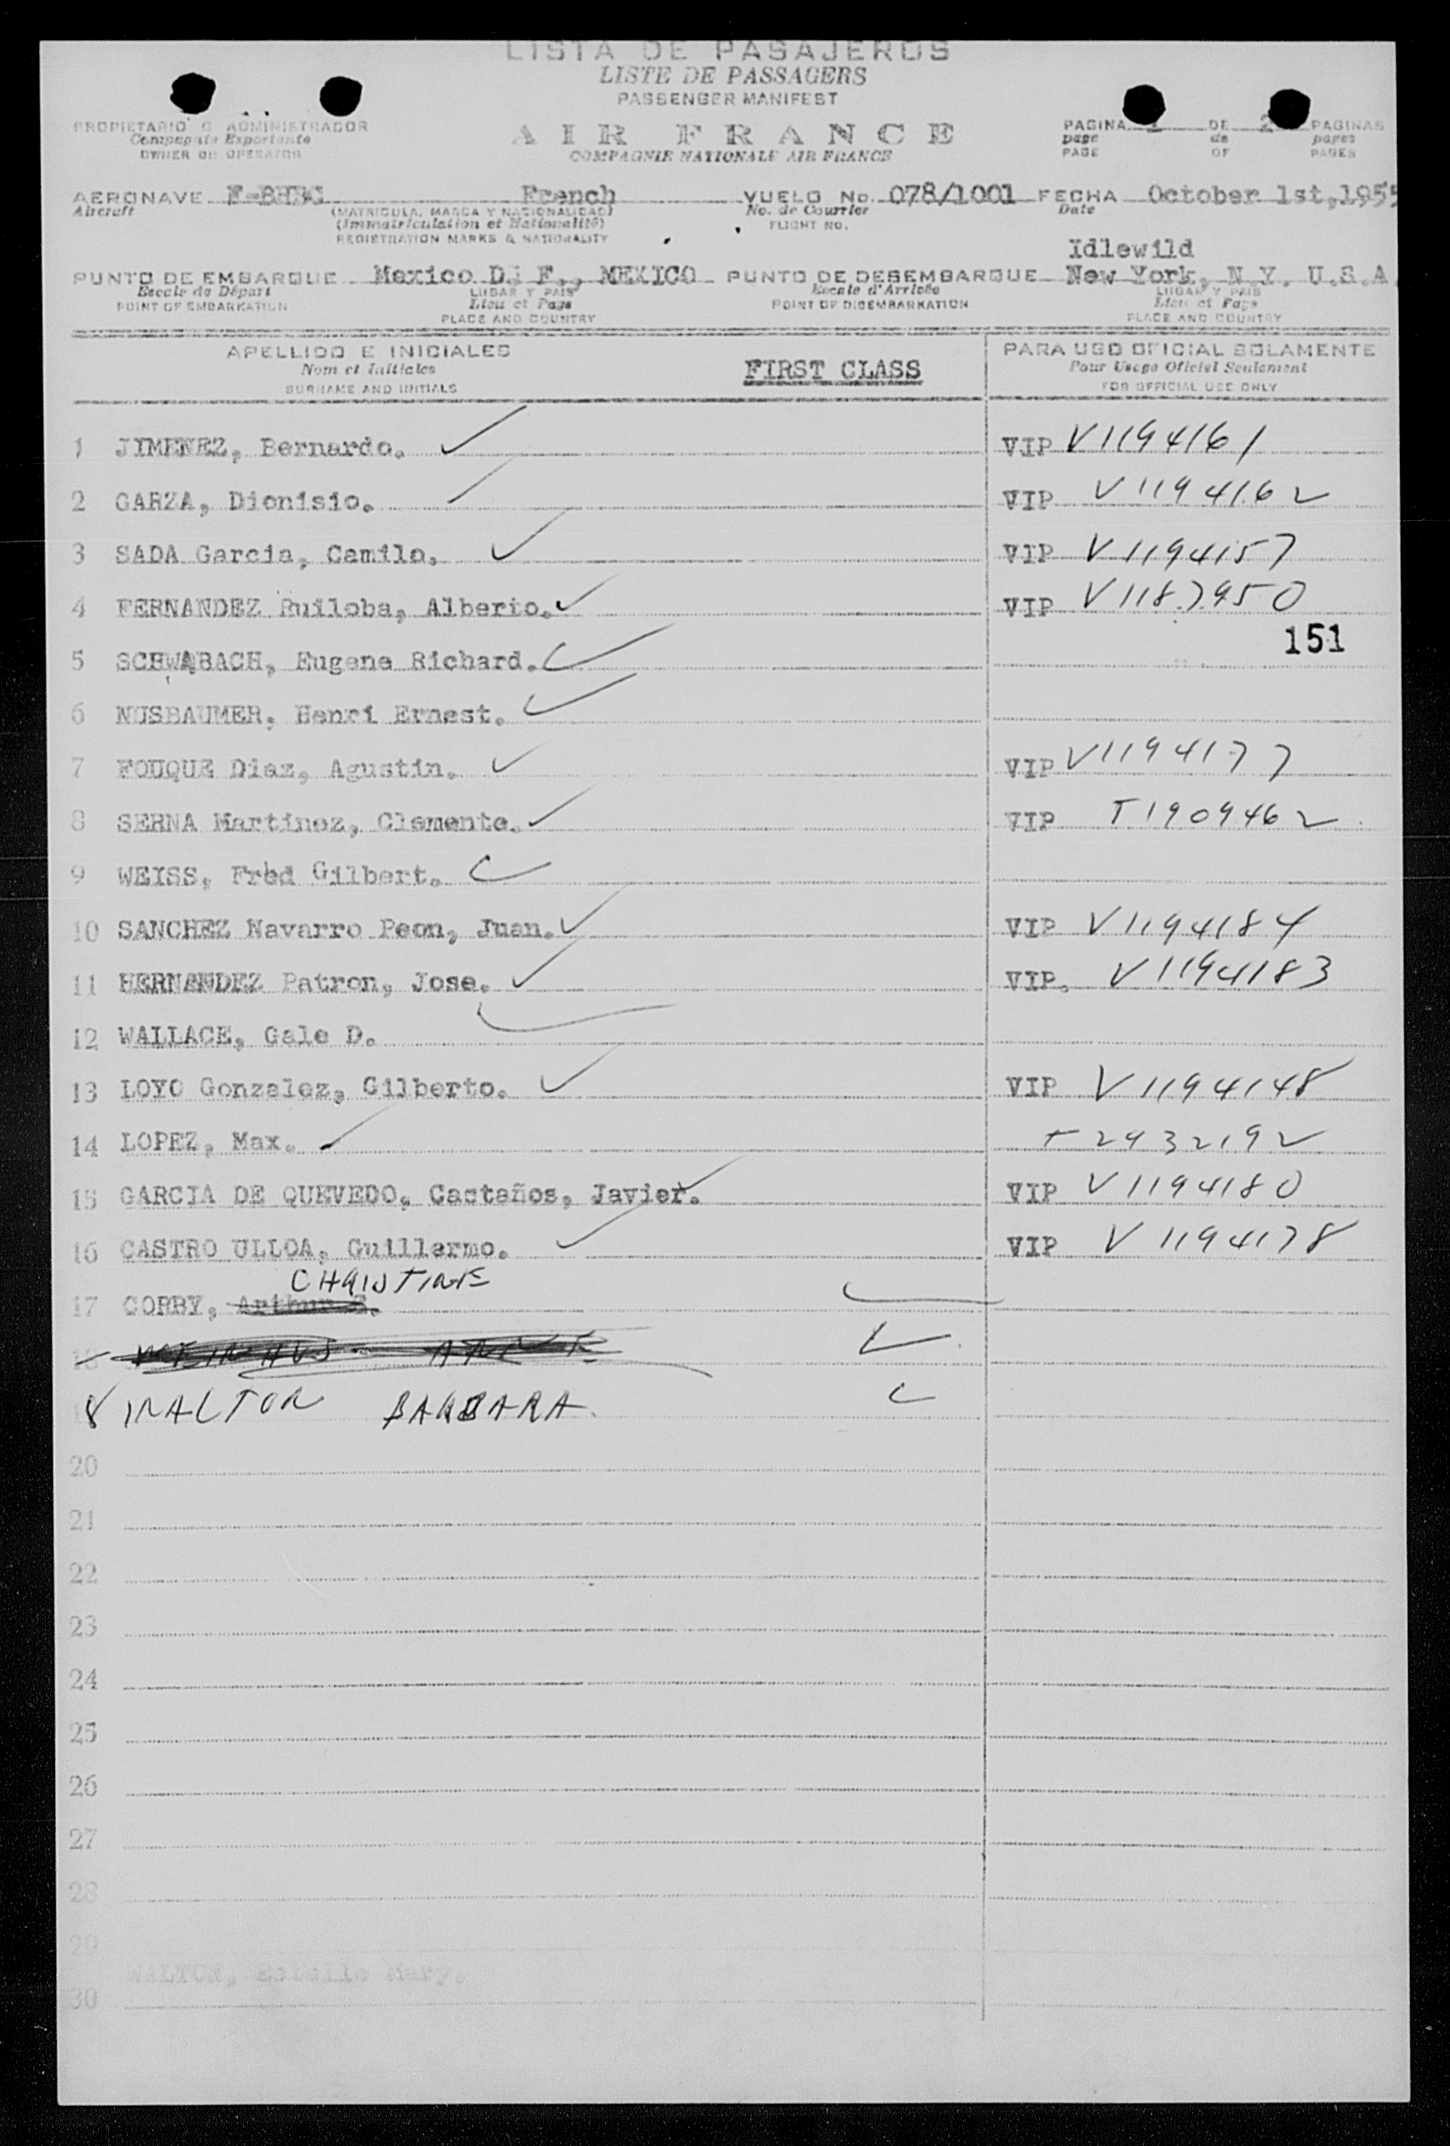 LISTA DE PASAJEROS
LISTE DE PASSAGERS
PASSENGER MANIFEST
PROPIETARIO O ADMINISTRADOR
Compagnie Exportante
OWNER OR OPERATOR
AIR FRANCE
COMPAGNIE NATIONALE AIR FRANCE
PAGINA 1 DE 2 PAGINAS
page de pages
PAGE OF PAGES
AERONAVE French VUELO No. 078/1001 FECHA October 1st, 1955
Aircraft (MATRICULA, MARCA Y NACIONALIDAD) No. de Courrier Date
(Immatriculation et Nationalité) FLIGHT NO.
REGISTRATION MARKS & NATIONALITY
Idlewild
PUNTO DE EMBARQUE Mexico D. F., MEXICO PUNTO DE DESEMBARQUE New York, N.Y. U.S.A.
Escale de Départ LUGAR Y PAIS Escale d'Arrivée LUGAR Y PAIS
POINT OF EMBARKATION Lieu et Pays POINT OF DISEMBARKATION Lieu et Pays
PLACE AND COUNTRY PLACE AND COUNTRY
APELLIDO E INICIALES PARA USO OFICIAL SOLAMENTE
Nom et Initiales FIRST CLASS Pour Usage Officiel Seulement
SURNAME AND INITIALS FOR OFFICIAL USE ONLY
1 JIMENEZ, Bernardo. VIP V1194161
2 GARZA, Dionisio. VIP V1194162
3 SADA Garcia, Camilo. VIP V1194157
4 FERNANDEZ Ruiloba, Alberto. VIP V1187950
151
5 SCHWABACH, Eugene Richard.
6 NUSBAUMER, Henri Ernest.
7 FOUQUE Diaz, Agustin. VIP V1194177
8 SERNA Martinez, Clemente. VIP T1909462
9 WEISS, Fred Gilbert.
10 SANCHEZ Navarro Peon, Juan. VIP V1194184
11 HERNANDEZ Patron, Jose. VIP. V1194183
12 WALLACE, Gale D.
13 LOYO Gonzalez, Gilberto. VIP V1194148
14 LOPEZ, Max. T2932192
15 GARCIA DE QUEVEDO, Castaños, Javier. VIP V1194180
16 CASTRO ULLOA, Guillermo. VIP V1194178
CHRISTINE
17 CORBY, Arthur
18
BARBARA
20
21
22
23
24
25
26
27
28
29
WALTON, Estelle Mary.
30